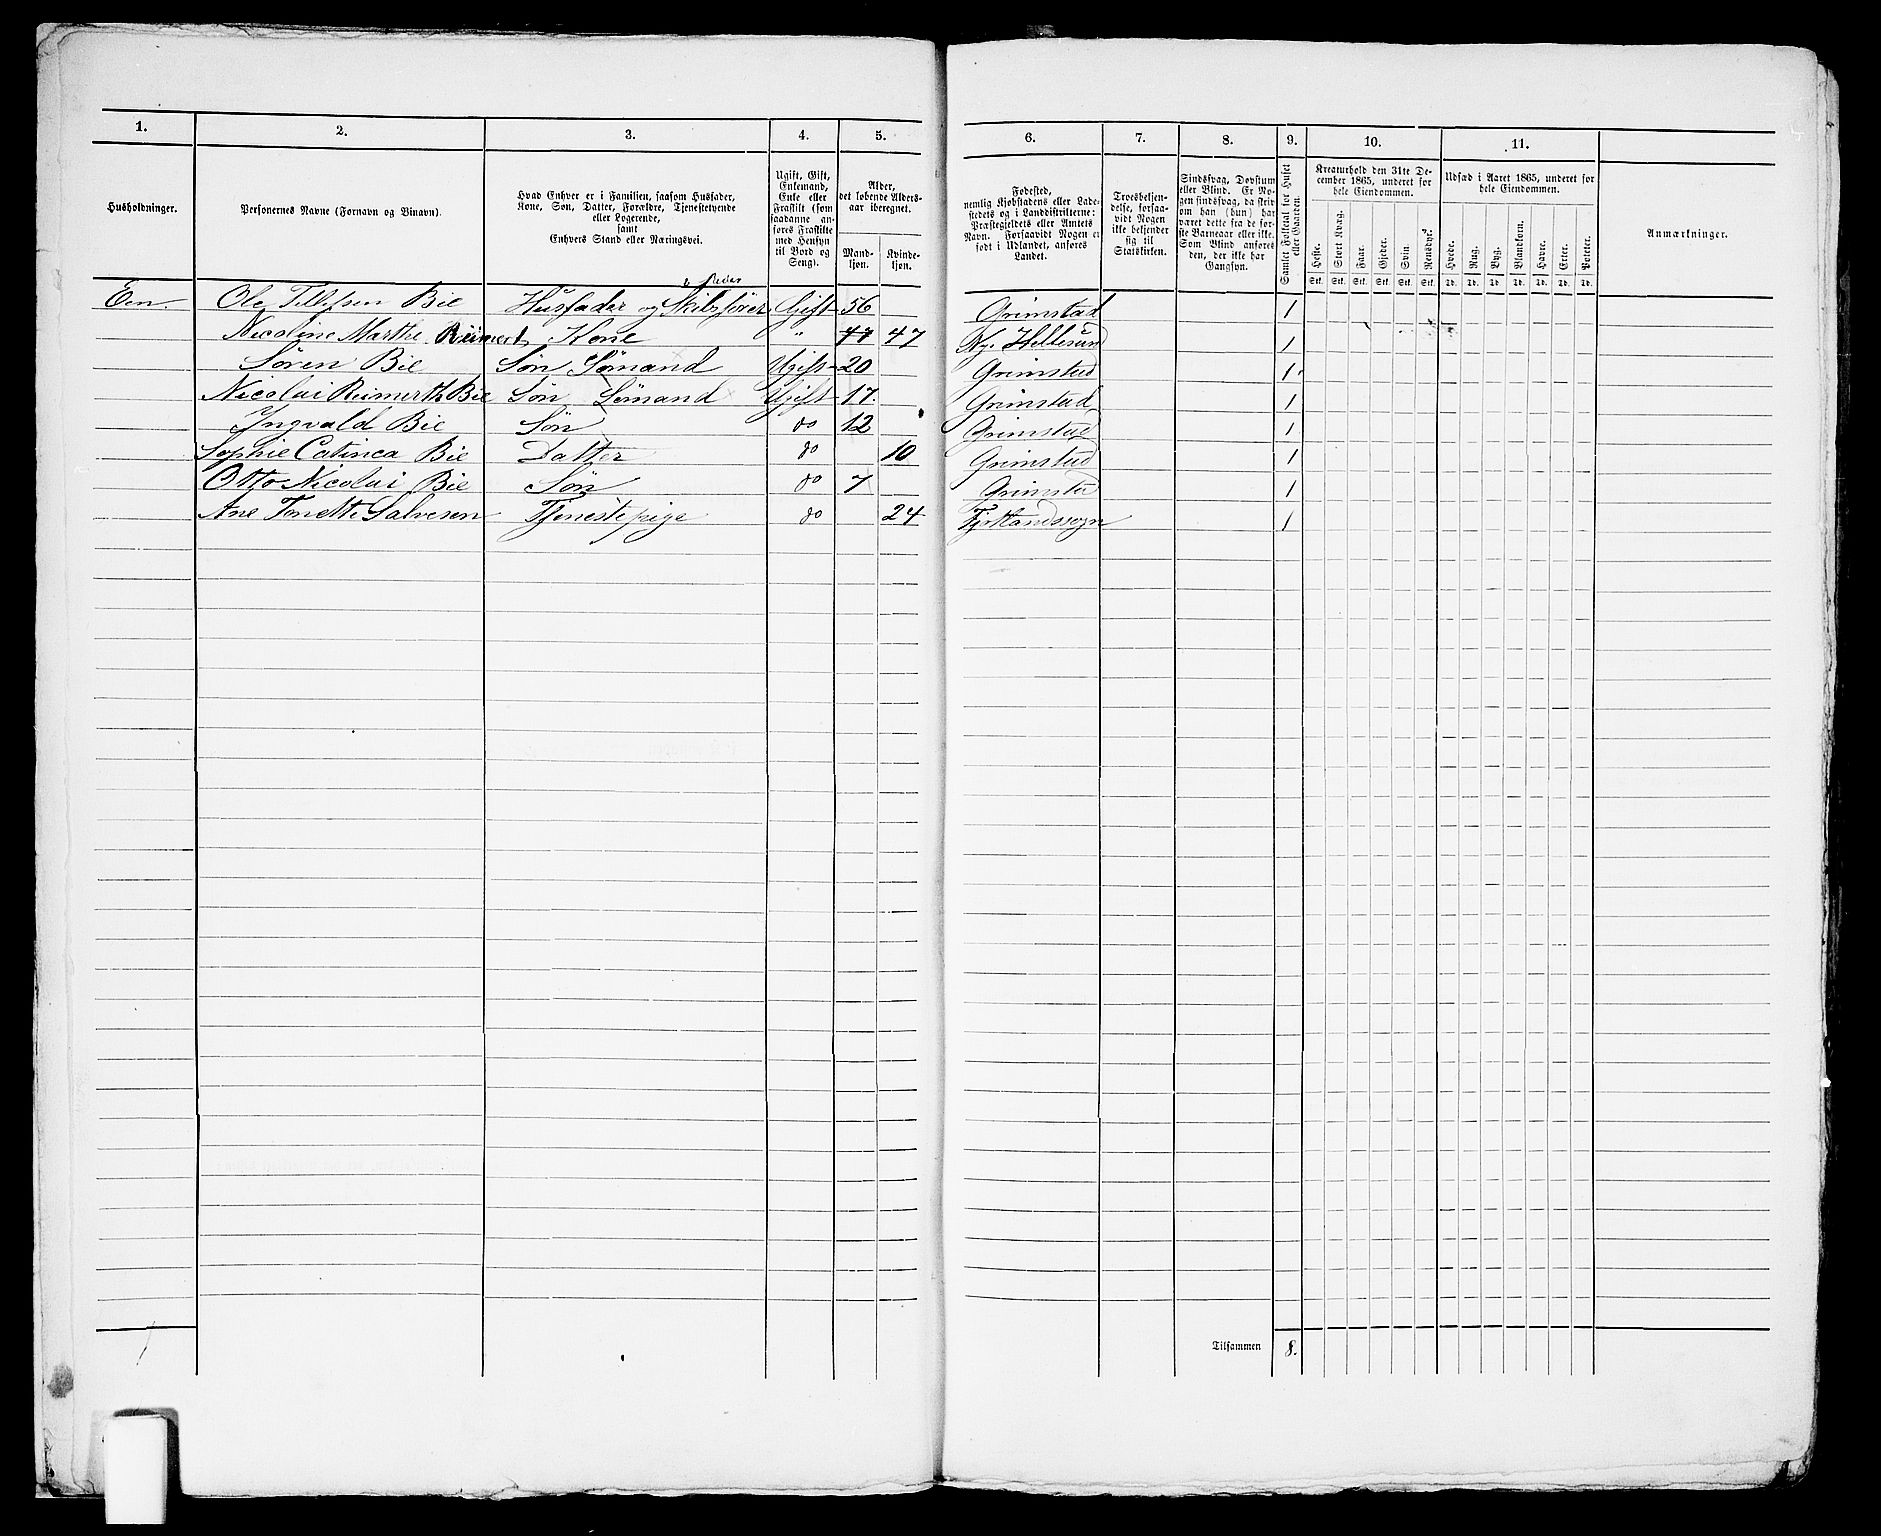 1. 2. 3. 4. 5. 6. 7. 8. 9. 10. 11.
Husholdninger.
Personernes Navne (Fornavn og Binavn).
Hvad Enhver er i Familien, saasom Husfader,
Kone, Søn, Datter, Forældre, Tjenestetyende
eller Logerende,
samt
Enhvers Stand eller Næringsvei.
Ugift, Gift,
Enkemand,
Enke eller
Fraskilt (som
saadanne an-
føres Fraskilte
med Hensyn
til Bord og
Seng).
Alder,
det løbende Alders-
aar iberegnet.
Mand-
kjøn.
Kvinde-
kjøn.
Fødested,
nemlig Kjøbstadens eller Lade-
stedets og i Landdistrikterne:
Præstegjeldets eller Amtets
Navn. Forsaavidt Nogen er
født i Udlandet, anføres
Landet.
Troesbekjen-
delse, forsaa-
vidt Nogen
ikke bekjender
sig til
Statskirken.
Sindssvag, Døvstum
eller Blind. Er No-
gen sindssvag, da skriv
om han (hun) har
været dette fra de før-
ste Barneaar eller ikke.
Som Blind anføres
den, der ikke har
Gangsyn.
Samlet Folketal for Huset
eller Gaarden.
Kreaturhold den 31te De-
cember 1865, underet for
hele Eiendommen.
Heste. Stort Kvæg. Faar. Gjeder. Svin. Rensdyr.
Stk. Stk. Stk. Stk. Stk. Stk.
Udsæd i Aaret 1865, underet for
hele Eiendommen.
Hvede. Rug. Byg. Blandkorn. Havre. Erter. Poteter.
Td. Td. Td. Td. Td. Td. Td.
Anmærkninger.
& Reder
Een Ole Tellefsen Bie Husfader og Skibsfører Gift 56 Grimstad 1
Nicoline Marthe Reimert Kone " 47 47 Ny Hellesund 1
Søren Bie Søn Sømand Ugift 20 Grimstad 1
Nicolai Reimerth Bie Søn Sømand Ugift 17. Grimstad 1
Ingvald Bie Søn do 12 Grimstad 1
Sophie Catinca Bie Datter do 10 Grimstad 1
Otto Nicolai Bie Søn do 7 Grimstad 1
Ane Tonette Salvesen Tjenestepige do 24 1
1
Tilsammen 8.